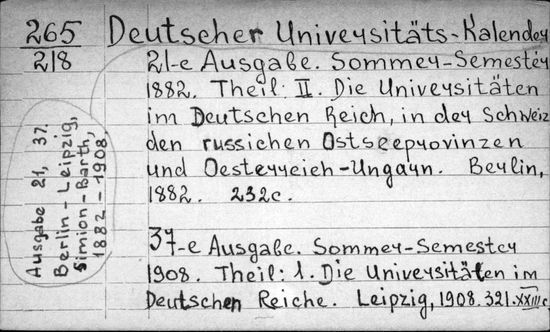 265
218
Deutscher Universitäts-Kalender
21-e Ausgabe. Sommer-Semester
1882. Theil: II. Die Universitäten
im Deutschen Reich, in der Schweiz
den russichen Ostseeprovinzen
und Oesterreich-Ungarn. Berlin,
1882. 232c.
37-e Ausgabe. Sommer-Semester
1908. Theil: 1. Die Universitäten im
Deutschen Reiche. Leipzig, 1908. 321.XXIIIc
Ausgabe 21, 37.
Berlin-Leipzig,
Simion-Barth,
1882-1908.